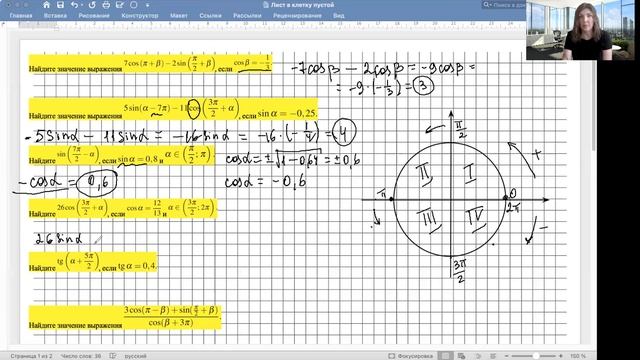 Лист в клетку пустой
Главная Вставка Рисование Конструктор Макет Ссылки Рассылки Рецензирование
Поиск в до
Найдите значение выражения 7cos(π+β)−2sin(π/2+β), если cosβ=−1/3.
-7cosβ − 2cosβ = −9cosβ =
= −9·(−1/3) = 3
Найдите значение выражения 5sin(α−7π)−11cos(3π/2+α), если sinα=−0,25.
-5sinα − 11sinα = −16sinα = −16·(−1/4) = 4
Найдите sin(7π/2−α), если sinα=0,8 и α∈(π/2;π).
cosα = ±√1−0,64 = ±0,6
−cosα = 0,6
cosα = −0,6
Найдите 26cos(3π/2+α), если cosα=12/13 и α∈(3π/2;2π).
26sinα
Найдите tg(α+5π/2), если tgα=0,4.
Найдите значение выражения 3cos(π−β)+sin(π/2+β)/cos(β+3π).
π/2
+
II I
π 0
2π
III IV
−
3π/2
Страница 1 из 2 Число слов: 36 русский Фокусировка 150 %